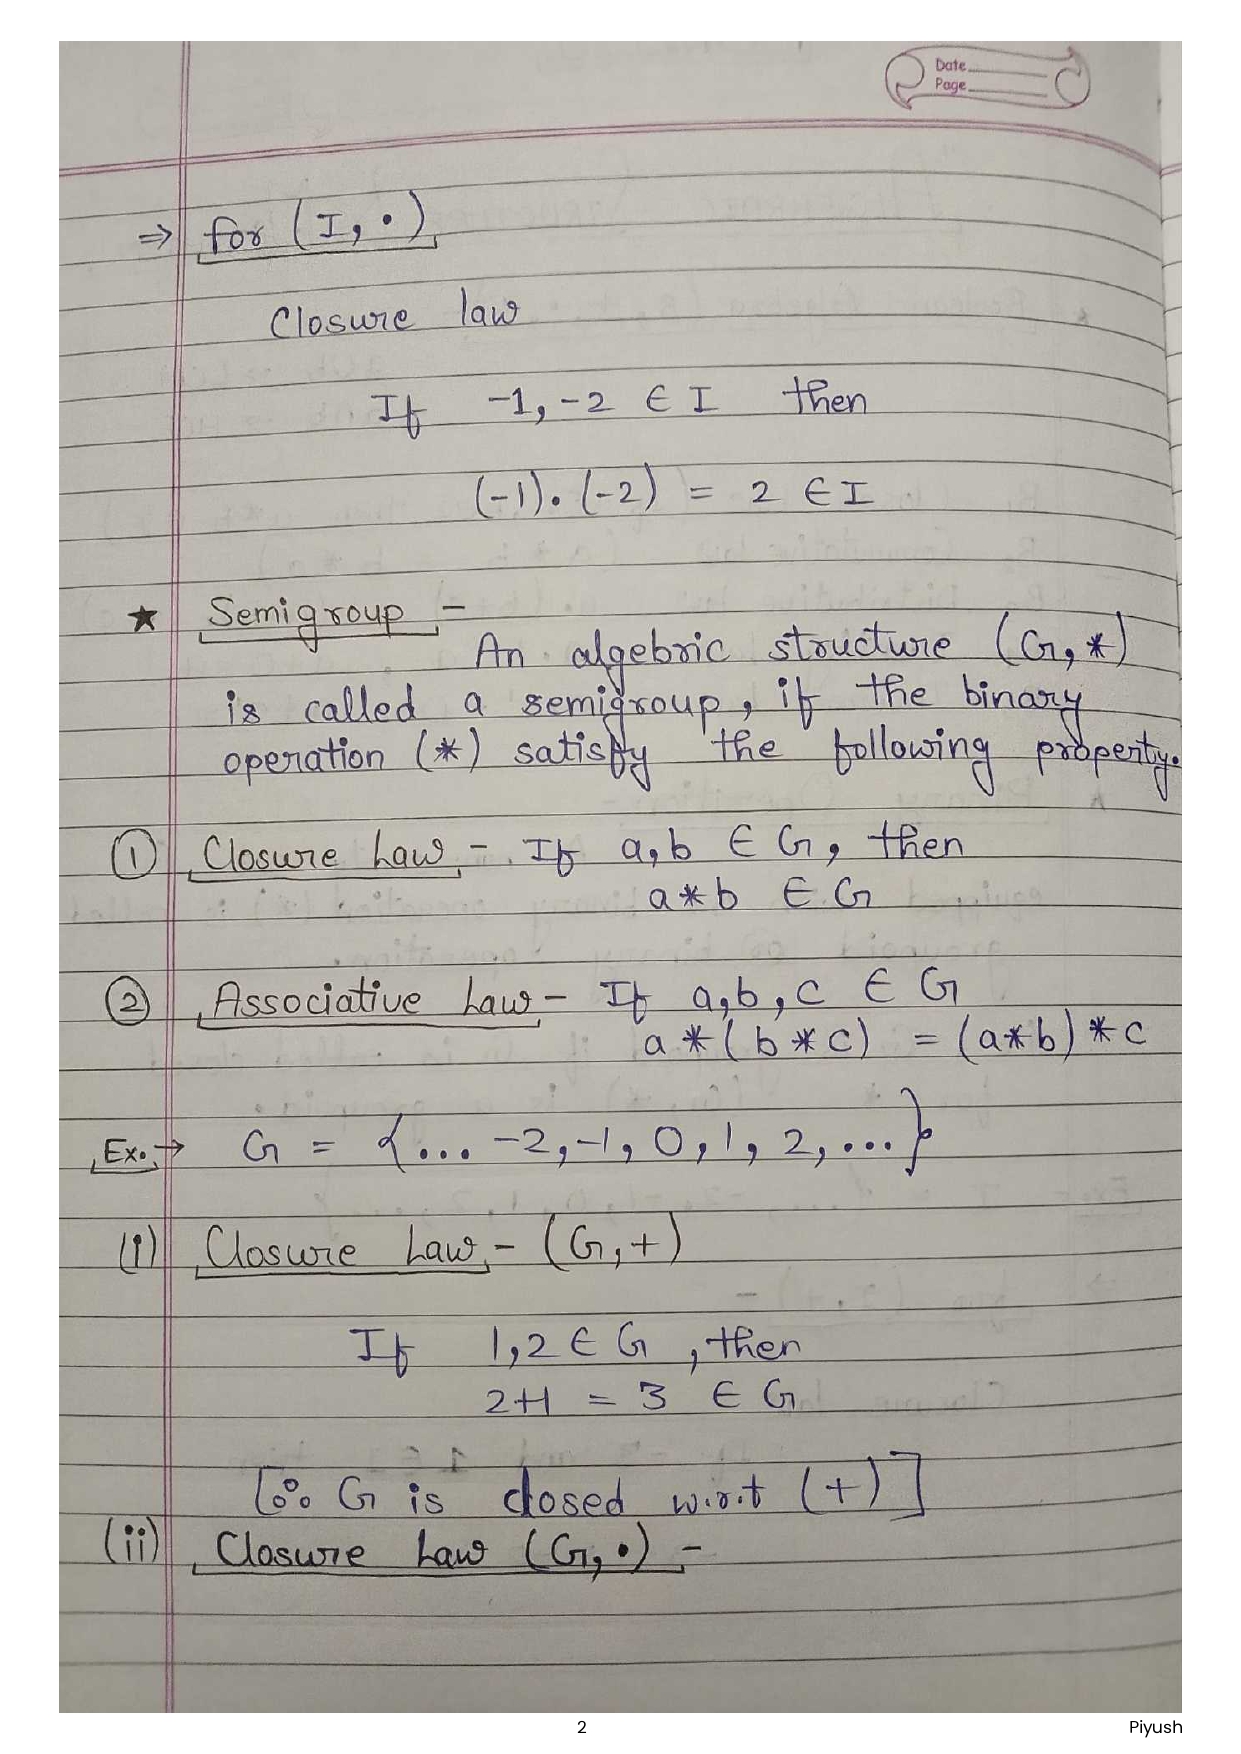 Date
Page
⇒ for (I, •)
Closure law
If -1, -2 ∈ I then
(-1). (-2) = 2 ∈ I
★ Semigroup -
An algebric structure (G, *)
is called a semigroup, if the binary
operation (*) satisfy the following property.
① Closure Law - If a, b ∈ G, then
a * b ∈ G
② Associative Law - If a, b, c ∈ G
a * (b * c) = (a * b) * c
Ex. → G = {... -2, -1, 0, 1, 2, ...}
(i) Closure Law - (G, +)
If 1, 2 ∈ G, then
2+1 = 3 ∈ G
[∴ G is closed w.r.t (+)]
(ii) Closure Law (G, •) -
2
Piyush